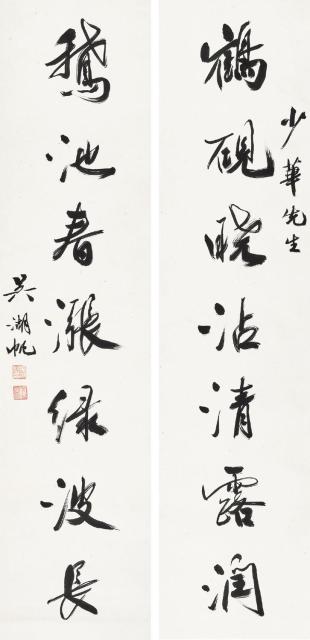 少華先生
鶴硯曉沾清露潤
鵝池春漲綠波長
吳湖帆